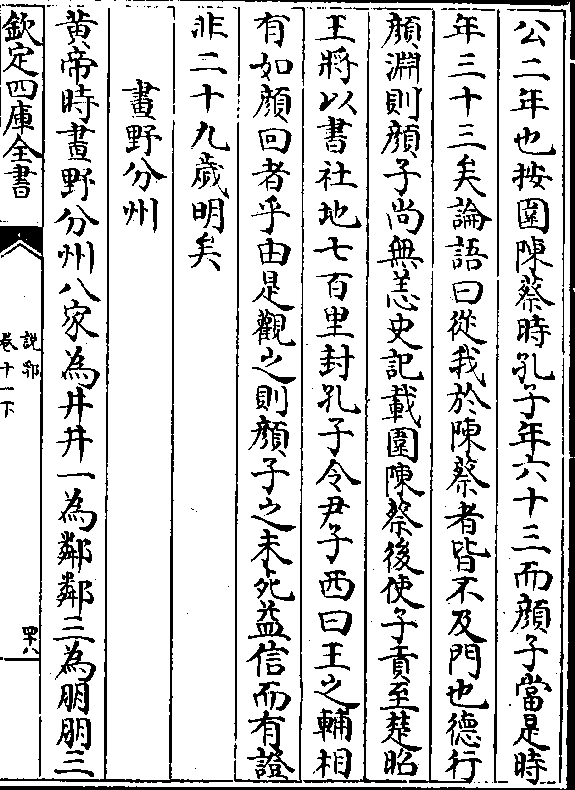 公二年也按圍陳蔡時孔子年六十三而顔子當是時
年三十三矣論語曰從我於陳蔡者皆不及門也德行
顔淵則顔子尚無恙史記載圍陳蔡後使子貢至楚昭
王將以書社地七百里封孔子令尹子西曰王之輔相
有如顔回者乎由是觀之則顔子之未死益信而有證
非二十九歲明矣
畫野分州
黄帝時畫野分州八家為井井一為鄰鄰三為朋朋三
欽定四庫全書
説郛
卷十一下
四十八